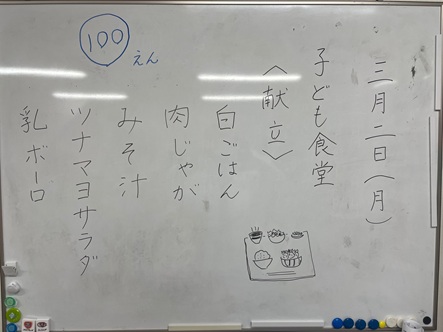 三月二日(月)
子ども食堂
〈献立〉
白ごはん
肉じゃが
みそ汁
ツナマヨサラダ
乳ボーロ
100えん